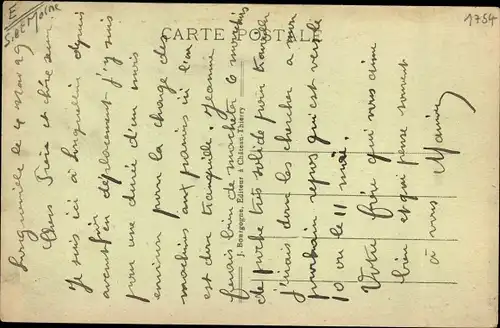 E
S. et Marne
1754
CARTE POSTALE
J. Bourgogne, Editeur à Château-Thierry
Longueville le 4 mai 19
Chers Frère et chère sœur.
Je suis ici à Longueville depuis
avant hier en déplacement j'y suis
pour une durée d'un mois
environ pour la change des
machines aux primeurs ici l'on
est donc tranquille. Jeanne
ferais bien de m'acheter 6 mouchoirs
de poche très solide pour travailler
j'irais donc les chercher a mon
prochain repos qui est vers le
10 ou le 11 mai.
Votre frère qui vous aime
bien et qui pense souvent
à vous